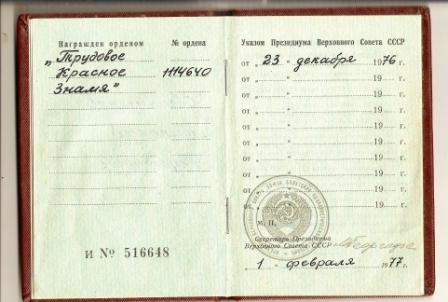 Награжден орденом № ордена
„Трудовое
Красное 1114640
Знамя"
И № 516648
Указом Президиума Верховного Совета СССР
от „ 23 " декабря 1976 г.
от „ " 19 г.
от „ " 19 г.
от „ " 19 г.
от „ " 19 г.
от „ " 19 г.
от „ " 19 г.
от „ " 19 г.
от „ " 19 г.
от „ " 19 г.
М. П.
Секретарь Президиума
Верховного Совета СССР
„ 1 " февраля 1977 г.